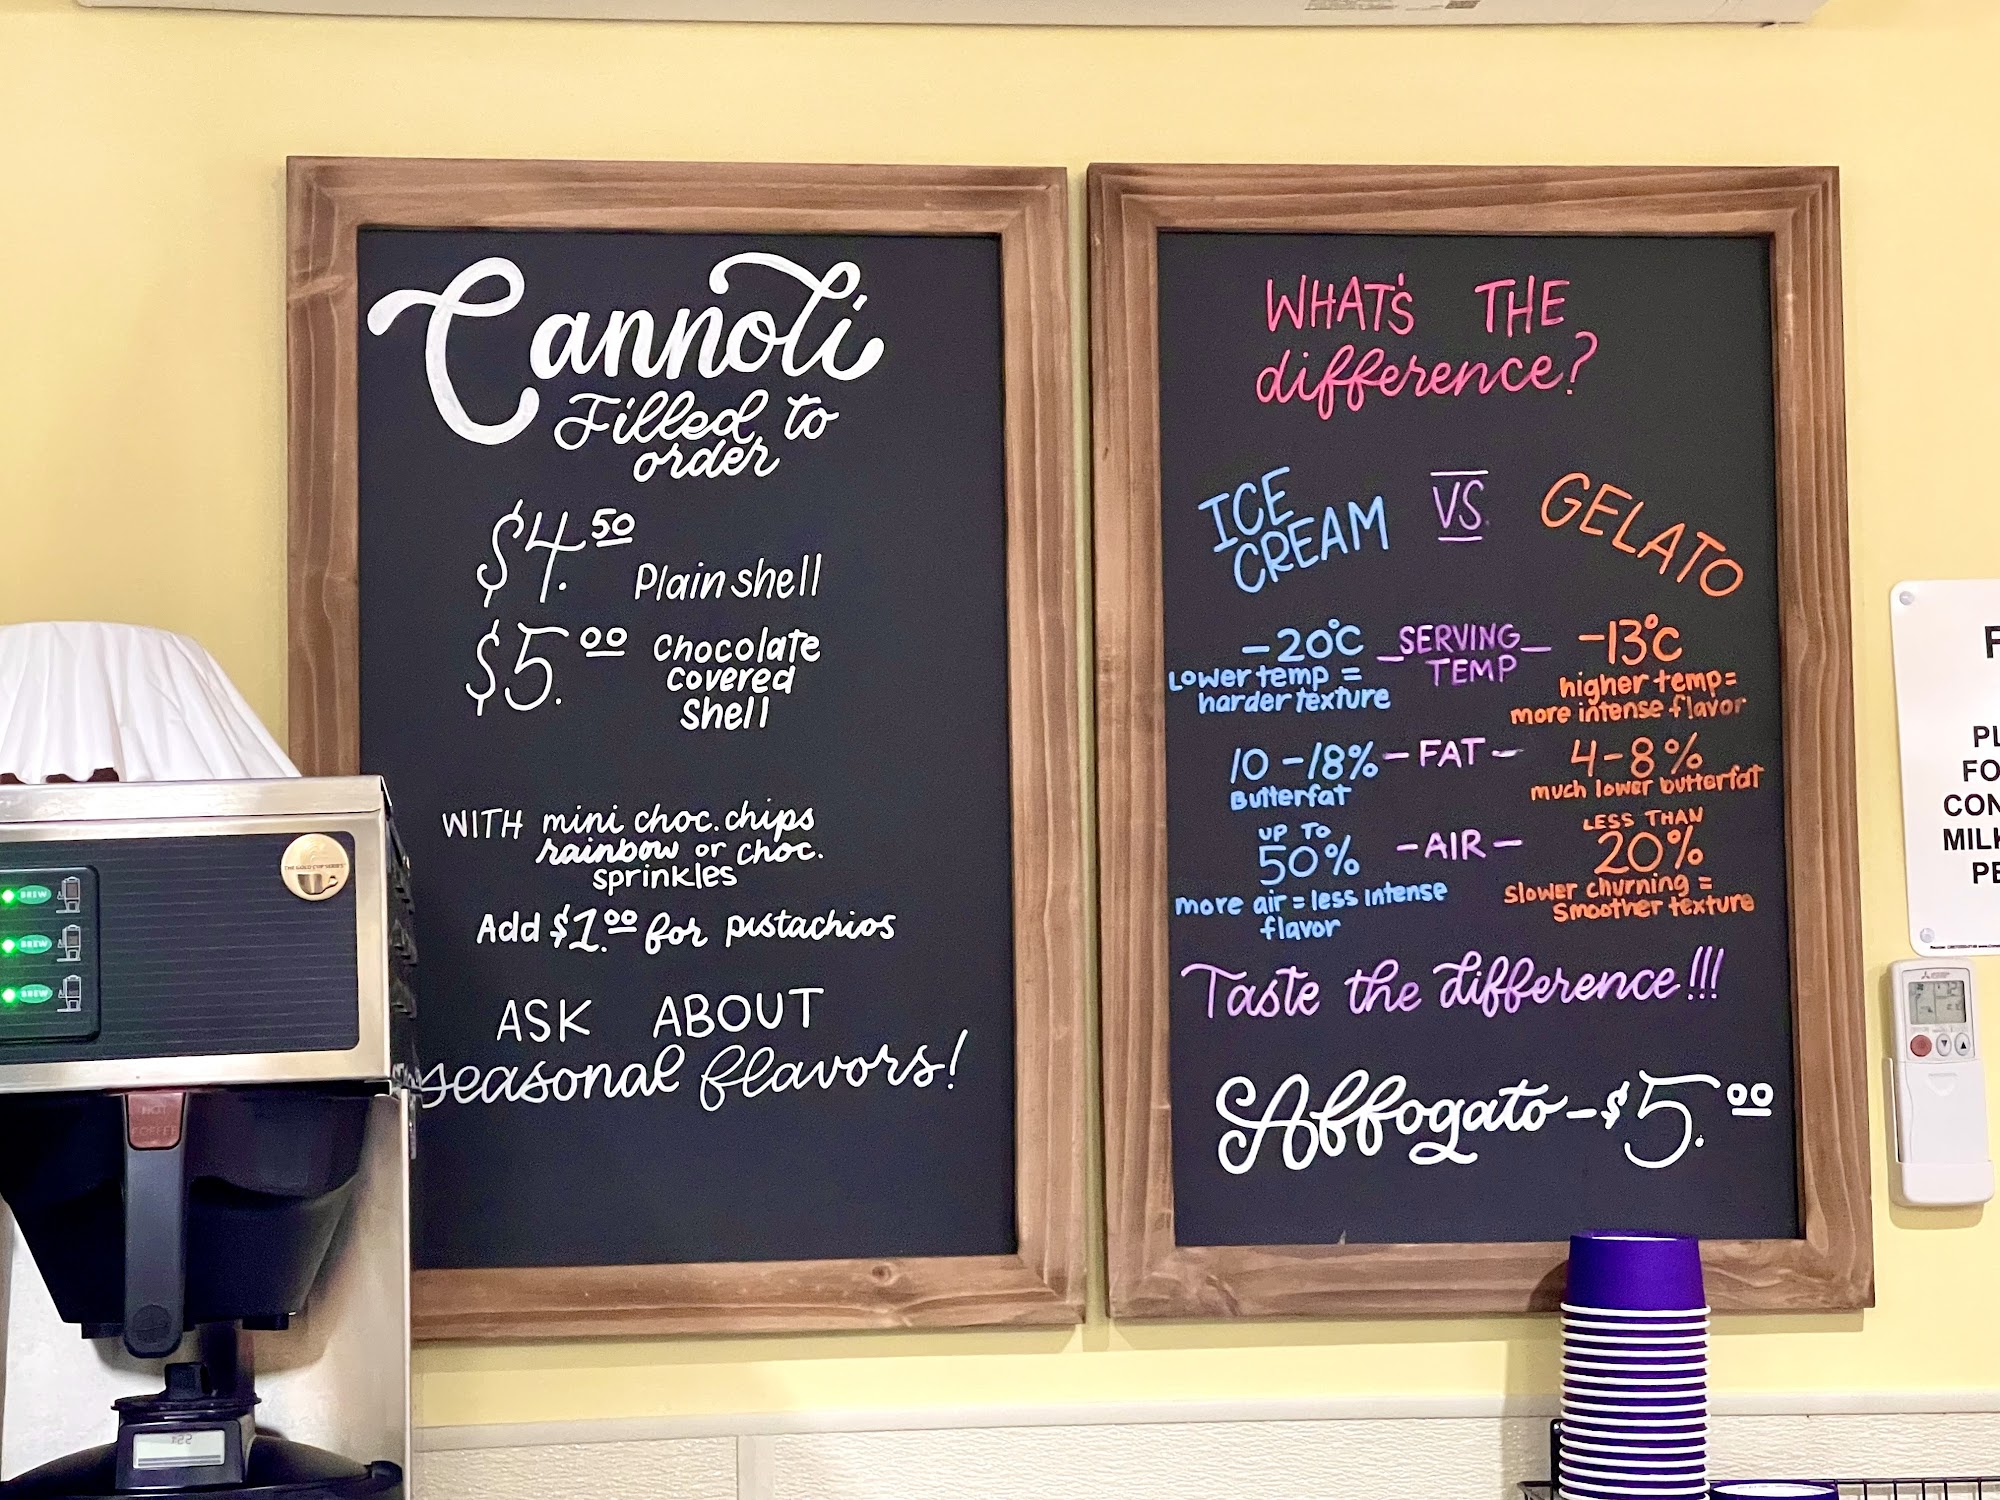 Cannoli
Filled to
order
$4.50 Plain shell
$5.00 Chocolate
covered
shell
WITH mini choc. chips
rainbow or choc.
sprinkles
Add $1.00 for pistachios
ASK ABOUT
seasonal flavors!
WHAT'S THE
difference?
ICE
CREAM
VS.
GELATO
-20°C - SERVING TEMP - -13°C
Lower temp =
harder texture
higher temp=
more intense flavor
10-18% - FAT - 4-8%
Butterfat
much lower butterfat
UP TO
50%
- AIR -
LESS THAN
20%
more air = less intense
flavor
Slower churning =
Smoother texture
Taste the difference!!!
Affogato - $5.00
BREW
BREW
BREW
HOT
COFFEE
PL
FO
CON
MILK
PE